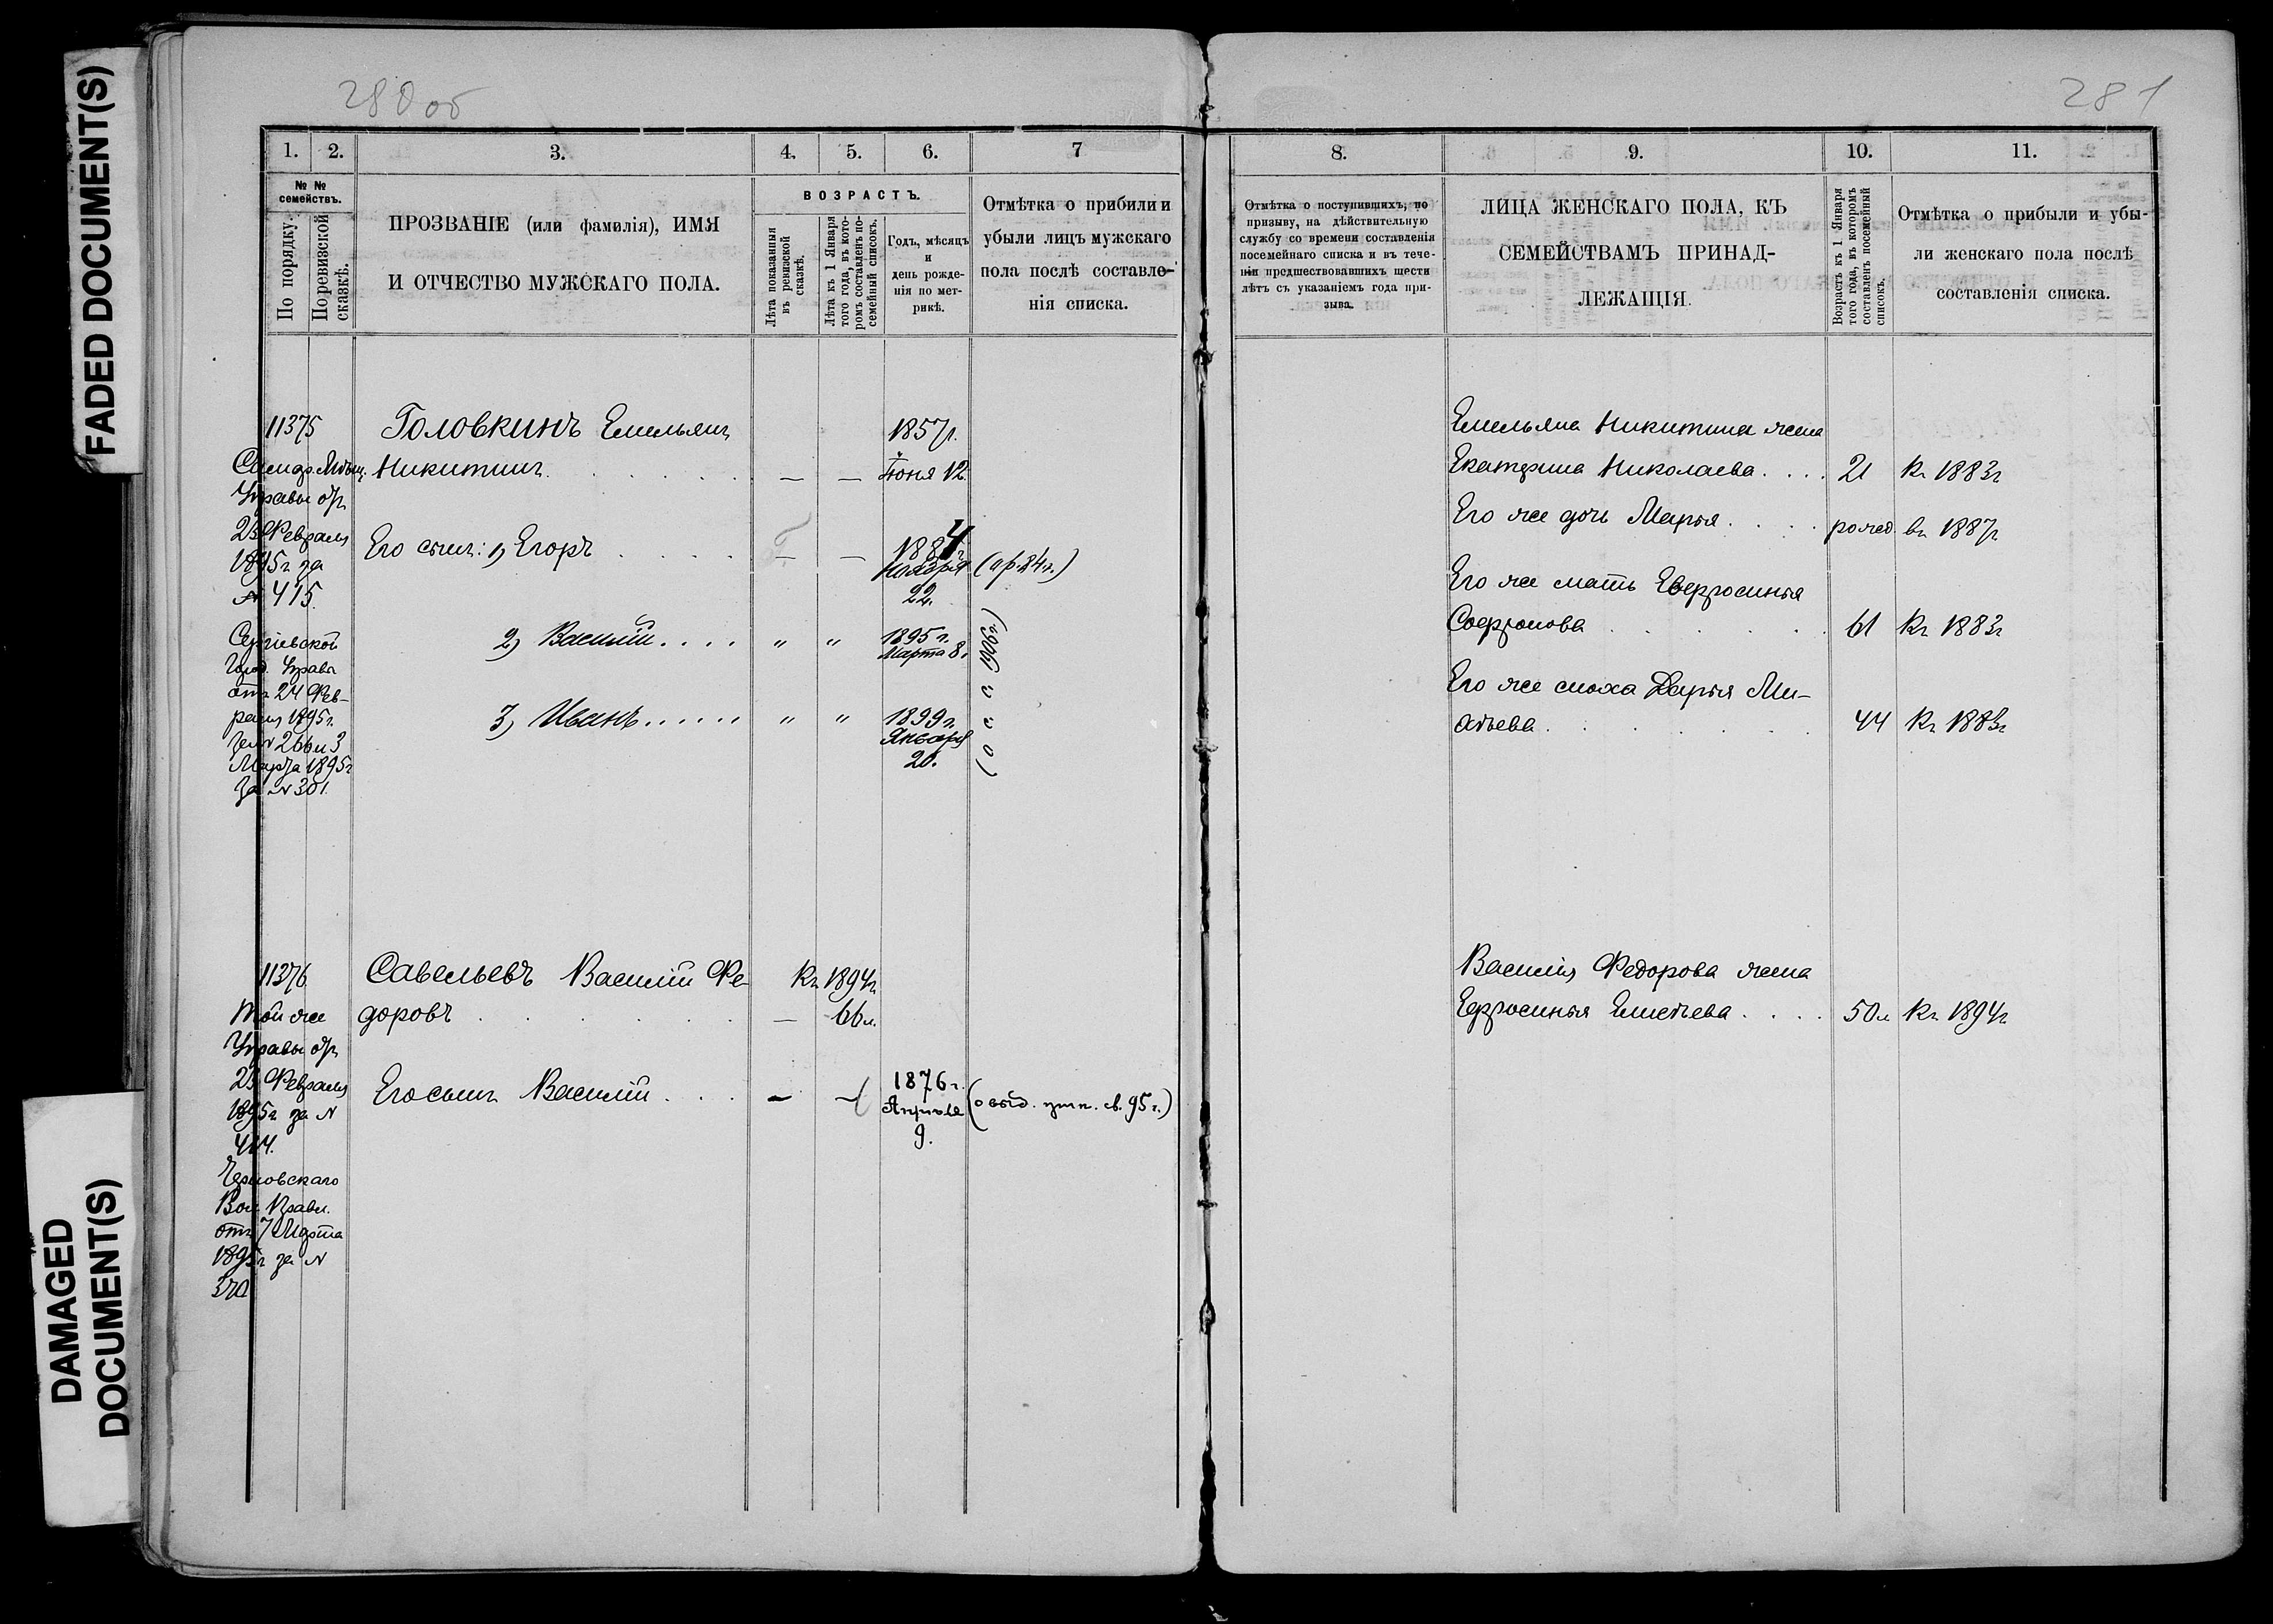 FADED DOCUMENT(S)
DAMAGED
DOCUMENT(S)
280об
1. 2. 3. 4. 5. 6. 7
№ №
семействъ.
По порядку.
По ревизской
сказкѣ.
ПРОЗВАНІЕ (или фамилія), ИМЯ
И ОТЧЕСТВО МУЖСКАГО ПОЛА.
ВОЗРАСТЪ.
Лѣта показанныя
въ ревизской
сказкѣ.
Лѣта къ 1 Января
того года, въ кото-
ромъ составленъ по-
семейный списокъ.
Годъ, мѣсяцъ
и
день рожде-
нія по мет-
рикѣ.
Отмѣтка о прибыли и
убыли лицъ мужскаго
пола послѣ составле-
нія списка.
11375
Самар. Мѣщ.
Управы от
23 Февраля
1895 г за
№ 415.
Сергіевской
Город. Управы
отъ 24 Фев-
раля 1895 г.
за № 266 и 3
Марта 1895 г
за № 301.
Головкинъ Емельянъ
Никитинъ . . . . . . — — 1857 г.
Іюня 12.
Его сынъ: 1) Егоръ . . . . — — 1884 г.
Ноября
22.
2) Василій . . . . " " 1895 г.
Марта 8.
3) Иванъ . . . . . " " 1899 г.
Января
20.
11376.
Той же
Управы от
23 Февраля
1895 г за №
414.
Вол. Правл.
отъ 7 Марта
1895 г за №
Савельевъ Василій Ѳе-
доровъ . . . . . . — Къ 1894 г.
66 л.
Его сынъ Василій . . . — — 1876 г.
Апрѣля
9.
281
8. 9. 10. 11.
Отмѣтка о поступившихъ, по
призыву, на дѣйствительную
службу со времени составленія
посемейнаго списка и въ тече-
ніи предшествовавшихъ шести
лѣтъ съ указаніемъ года при-
зыва.
ЛИЦА ЖЕНСКАГО ПОЛА, КЪ
СЕМЕЙСТВАМЪ ПРИНАД-
ЛЕЖАЩІЯ.
Возрастъ къ 1 Января
того года, въ которомъ
составленъ посемейный
списокъ.
Отмѣтка о прибыли и убы-
ли женскаго пола послѣ
составленія списка.
Емельяна Никитина жена
Екатерина Николаева . . . . 21 Къ 1883 г
Его же дочь Марья . . . . рожд. въ 1887 г
Его же мать Евфросинья
Софронова . . . . . . 61 Къ 1883 г
Его же сноха Дарья Ми-
. . . . . . 44 Къ 1883 г
Василія Федорова жена
Ефросинья . . . . 50 л Къ 1894 г